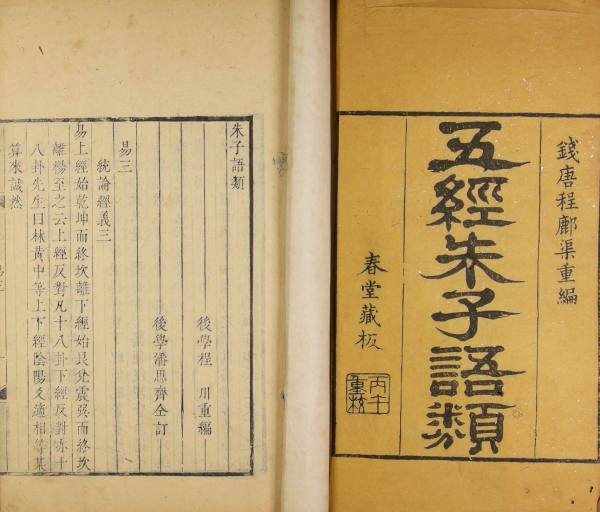 錢唐程鄜渠重編
五經朱子語類
春堂藏板
朱子語類
後學程 川重編
後學潘思齊仝訂
易三
統論經義三
易上經始乾坤而終坎離下經始艮兌震巽而終坎
離楊至之云上經反對凡十八卦下經反對亦十
八卦先生曰林黃中等上下經陰陽爻適相等某
算來誠然